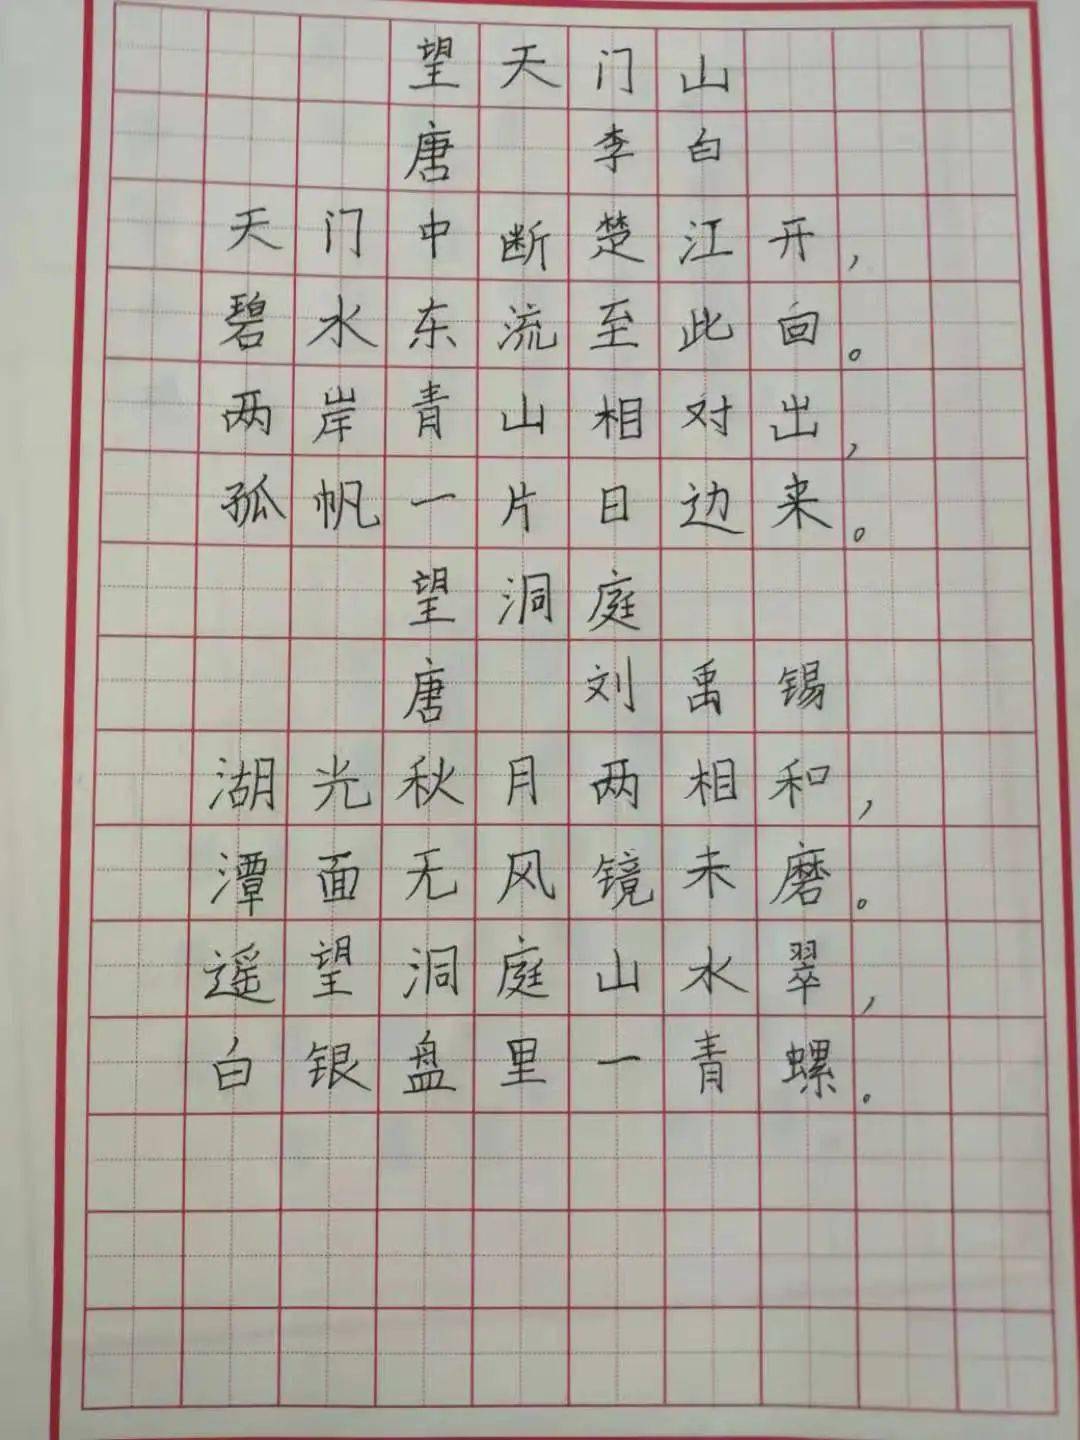 望天门山
唐 李白
天门中断楚江开，
碧水东流至此回。
两岸青山相对出，
孤帆一片日边来。
望洞庭
唐 刘禹锡
湖光秋月两相和，
潭面无风镜未磨。
遥望洞庭山水翠，
白银盘里一青螺。